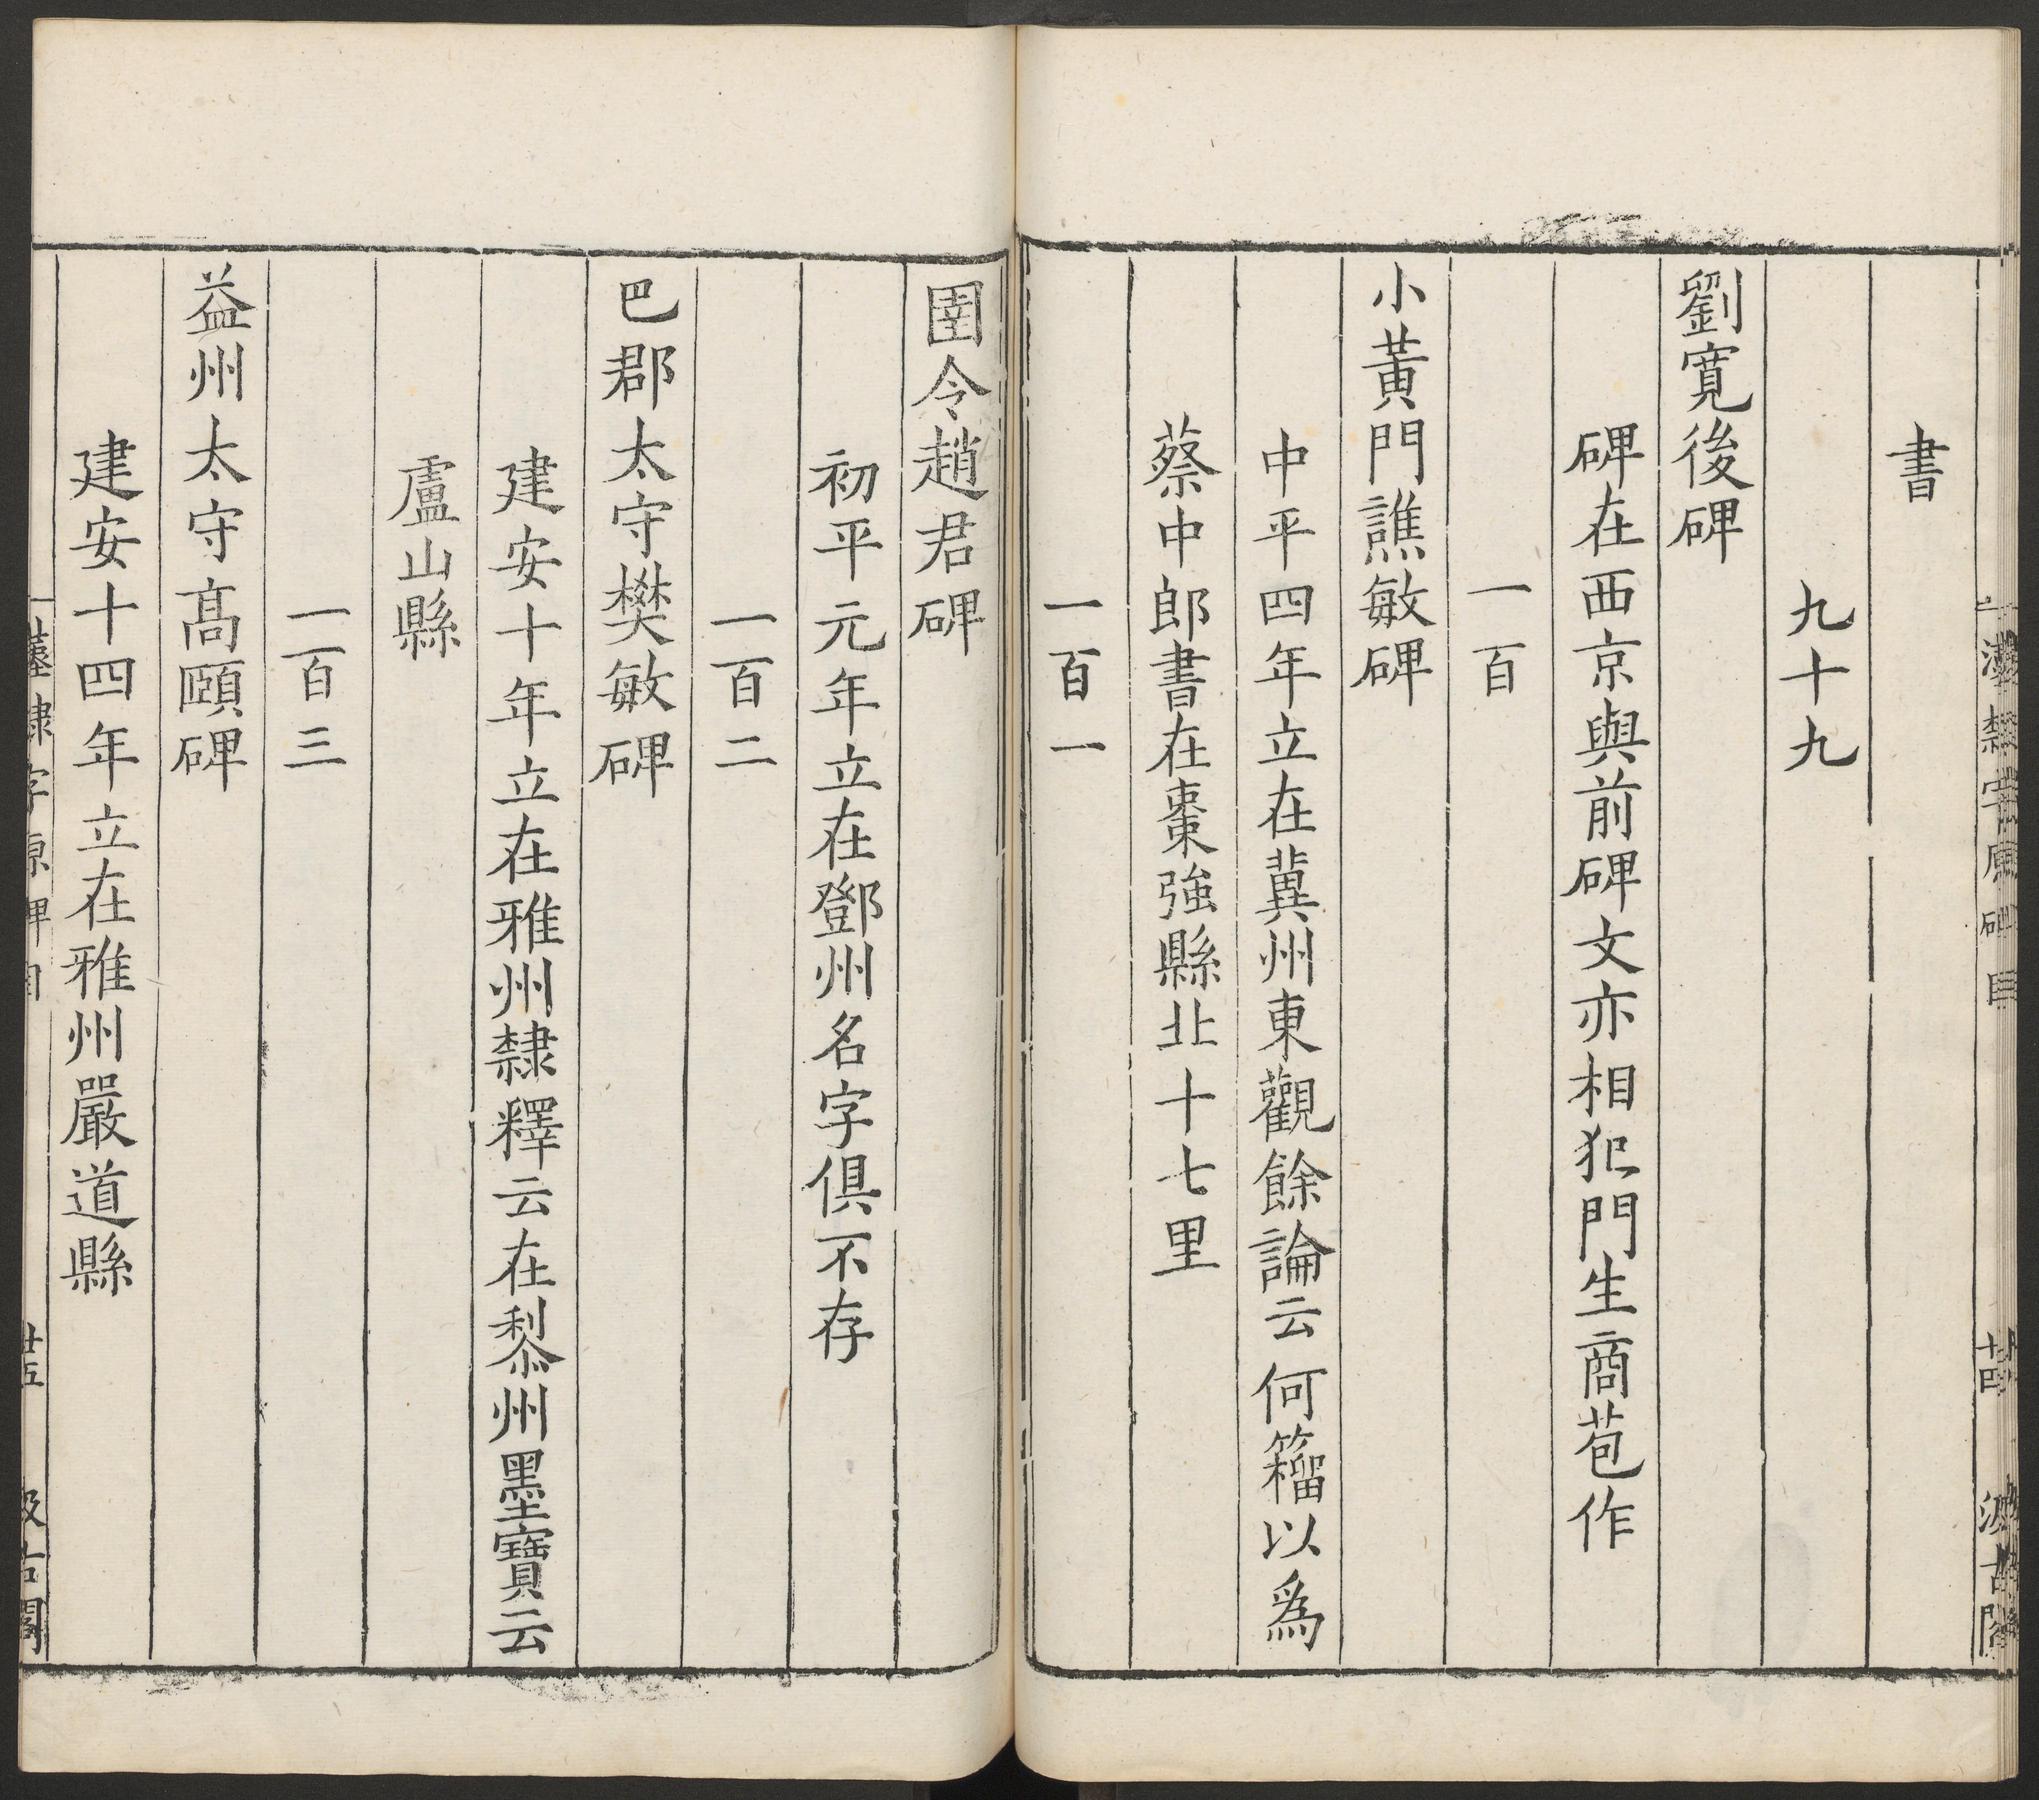 書
九十九
劉寛後碑
碑在西京與前碑文亦相犯門生商苞作
一百
小黃門譙敏碑
中平四年立在冀州東觀餘論云何籀以爲
蔡中郎書在棗強縣北十七里
一百一
圉令趙君碑
初平元年立在鄧州名字俱不存
一百二
巴郡太守樊敏碑
建安十年立在雅州隸釋云在黎州墨寶云
盧山縣
一百三
益州太守高頤碑
建安十四年立在雅州嚴道縣
隸字原碑目